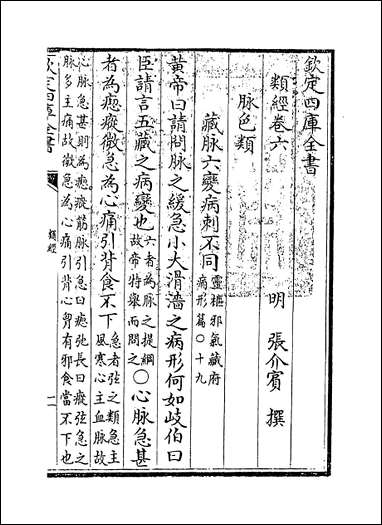 欽定四庫全書
類經卷六
明 張介賓 撰
脉色類
藏脉六變病刺不同
靈樞邪氣藏府
病形篇○十九
黃帝曰請問脉之緩急小大滑濇之病形何如岐伯曰
臣請言五藏之病變也
六者為脉之提綱
故帝特舉而問之
○心脉急甚
者為瘛瘲微急為心痛引背食不下
急者弦之類急主
風寒心主血脉故
心脉急甚則為瘛瘲筋脉引急曰瘛弛長曰瘲弦急之
脉多主痛故微急為心痛引背心胷有邪食當不下也
欽定四庫全書
類經
一